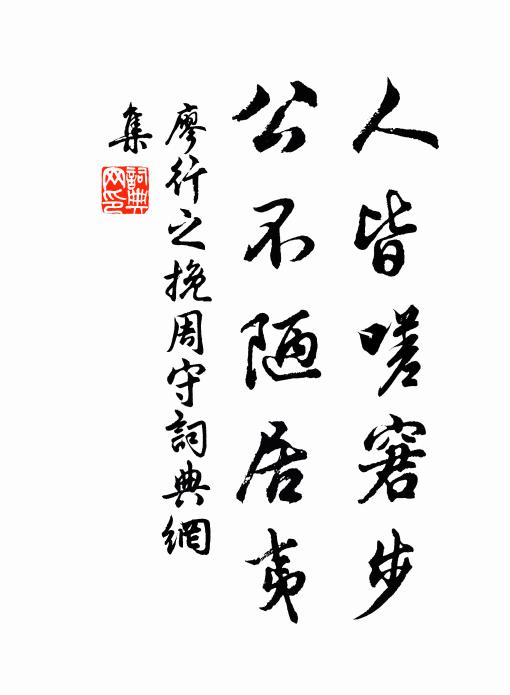 人皆嗟窘步
公不陋居夷
廖行之挽周守詞典網
集
詞典網印